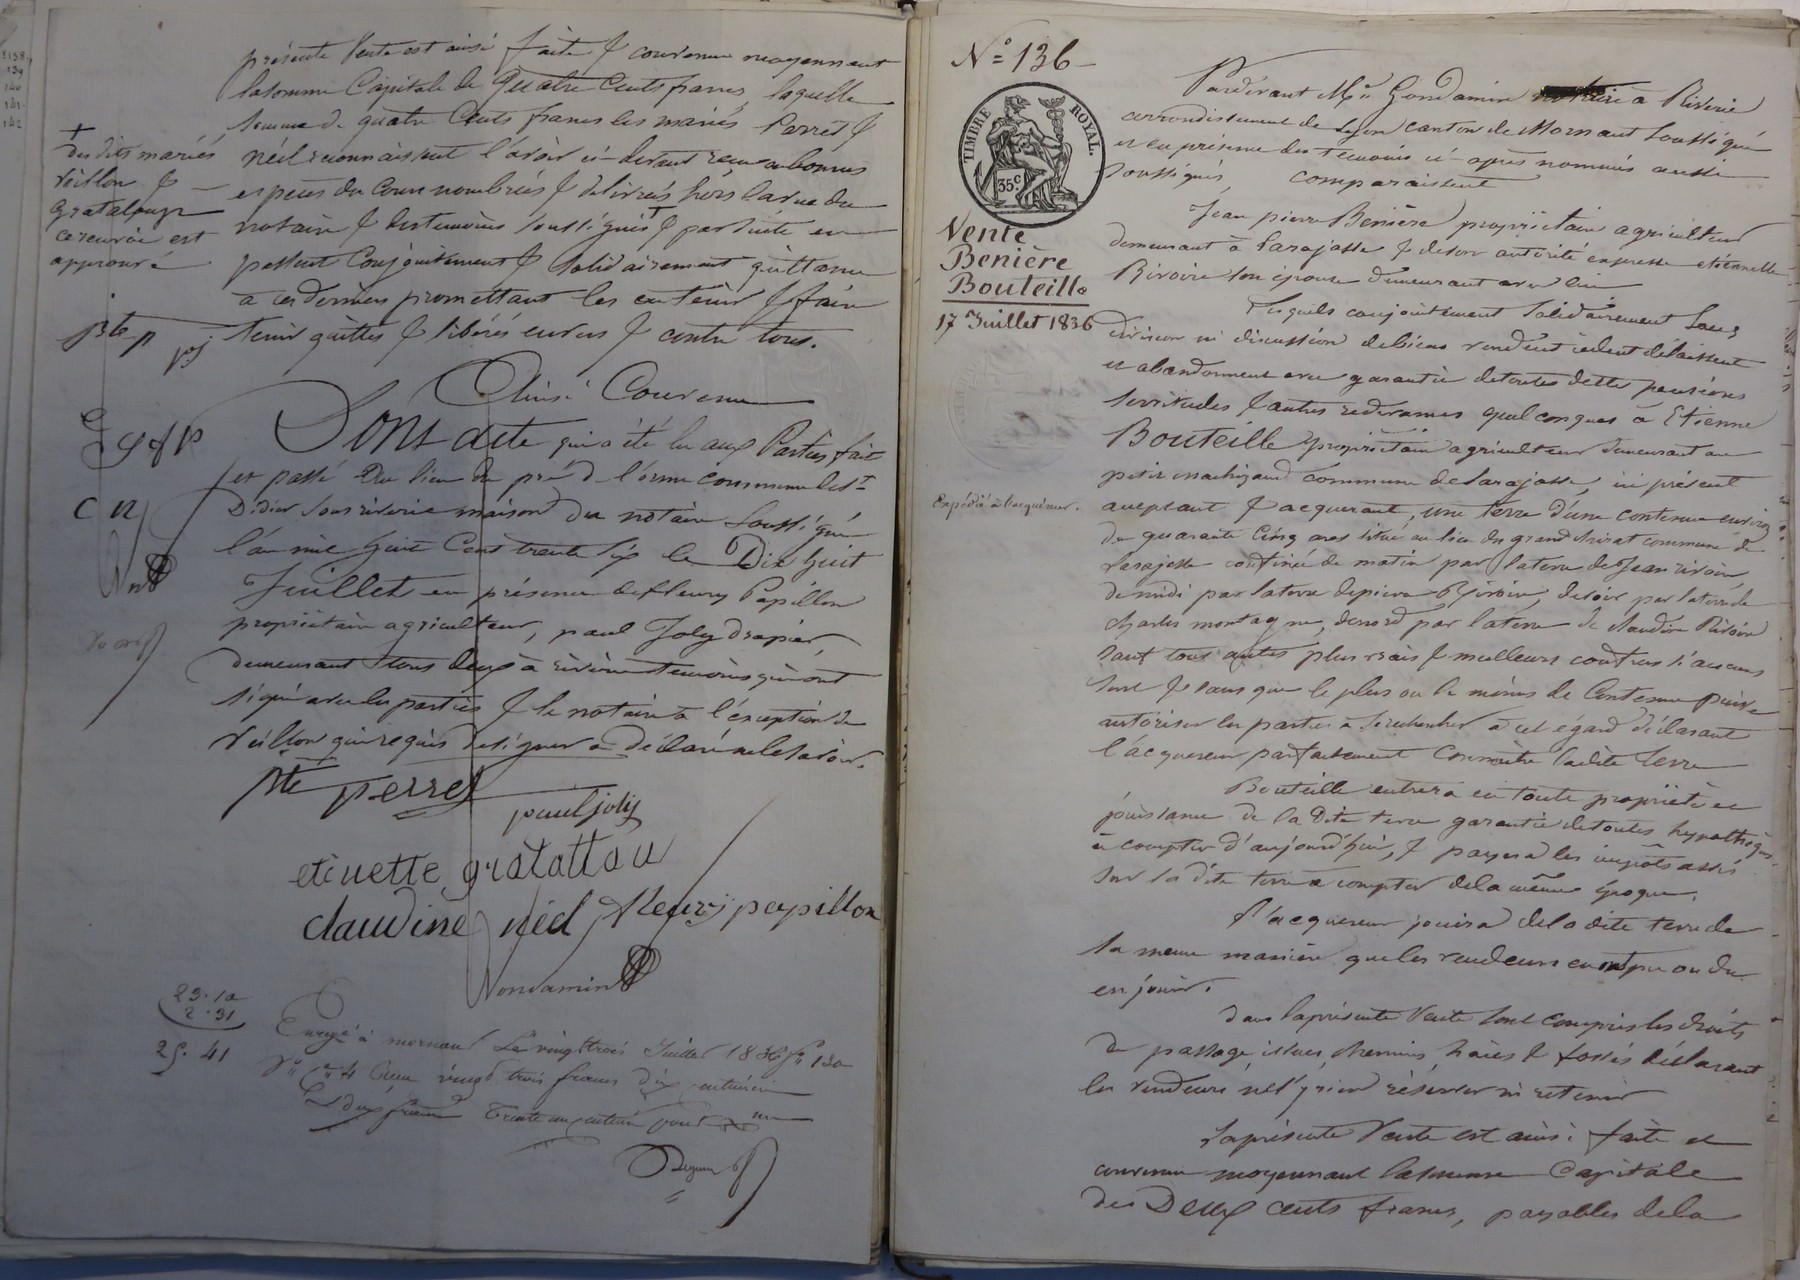 présente Vente est ainsi faite & convenue moyennant
la somme Capitale de Quatre Cents francs, laquelle
somme de quatre Cents francs les mariés Perret &
néel reconnaissent l'avoir ci-devant reçu en bonnes
espèces du cours nombrées & délivrées hors la vue du
notaire & des temoins soussignés & par suite en
passent Conjointement & Solidairement quittance
a ces derniers promettant les en tenir & faire
tenir quittes & libérés envers & contre tous.
+
desdits mariés
Veillon &
Gratalouze
ce renvoi est
approuvé
jbte p
pj
Ainsi Convenu
Dont acte qui a été lu aux Parties, fait
et passé au lieu du pré de l'orme commune de St
Didier sous riverie maison du notaire soussigné
l'an mil huit Cent trente six le Dix huit
Juillet en présence de fleury Papillon
propriétaire agriculteur, paul Joly drapier,
demeurant tous deux à riverie temoins qui ont
signé avec les parties & le notaire à l'exception de
Veillon qui requis de signer a déclaré ne le savoir.
C n
Jbte perret
paul joly
etienette gratallou
claudine néel fleury papillon
Gondamin
25. 10
2. 31
25. 41
Enregé à mornant Le vingt trois Juillet 1836 fo 130
Vo Co 4 Reçu vingt trois francs dix centimes
& deux francs Trente un centimes pour
N° = 136
TIMBRE ROYAL.
35c
Vente
Benière
Bouteille
17 Juillet 1836
Expédié à l'acquéreur.
Pardevant Me Gondamin notaire à Riverie
arrondissement de Lyon canton de Mornant soussigné
et en présence des temoins ci-après nommés aussi
soussignés, comparaissent
Jean pierre Benière propriétaire agriculteur
demeurant à Larajasse & de son autorité expresse etiennette
Rivoire son épouse demeurant avec lui
Lesquels conjointement solidairement sans
division ni discussion de biens vendent cèdent délaissent
et abandonnent avec garantie de toutes dettes pensions
servitudes & autres redevances quelconques à Etienne
Bouteille propriétaire agriculteur demeurant au
petit machizaud commune de Larajasse, ici présent
acceptant & acquérant, une terre d'une contenue environ
de quarante cinq ares située au lieu du grand commune de
Larajasse confinée de matin par la terre de Jean rivoire,
de midi par la terre de pierre Rivoire, de soir par la terre de
charles montagne, de nord par la terre de claudine Rivoire
sauf tous autres plus vrais & meilleurs confins si aucuns
sont & sans que le plus ou le moins de Contenue puisse
autoriser les parties à se rechercher à cet égard déclarant
l'acquereur parfaitement connaître ladite terre
Bouteille entrera en toute propriété et
jouissance de la dite terre garantie de toutes hypothèques
à compter d'aujourd'hui, & payera les impôts assis
sur la dite terre à compter de la même époque.
l'acquereur jouira de la dite terre de
la meme manière que les vendeurs en ont pu ou du
en jouir.
dans la présente Vente sont compris les droits
de passage, issues, chemins, haies & fossés déclarant
les vendeurs ne s'y rien réserver ni retenir
La présente Vente est ainsi faite et
convenue moyennant la somme Capitale
de Deux cents francs, payables de la